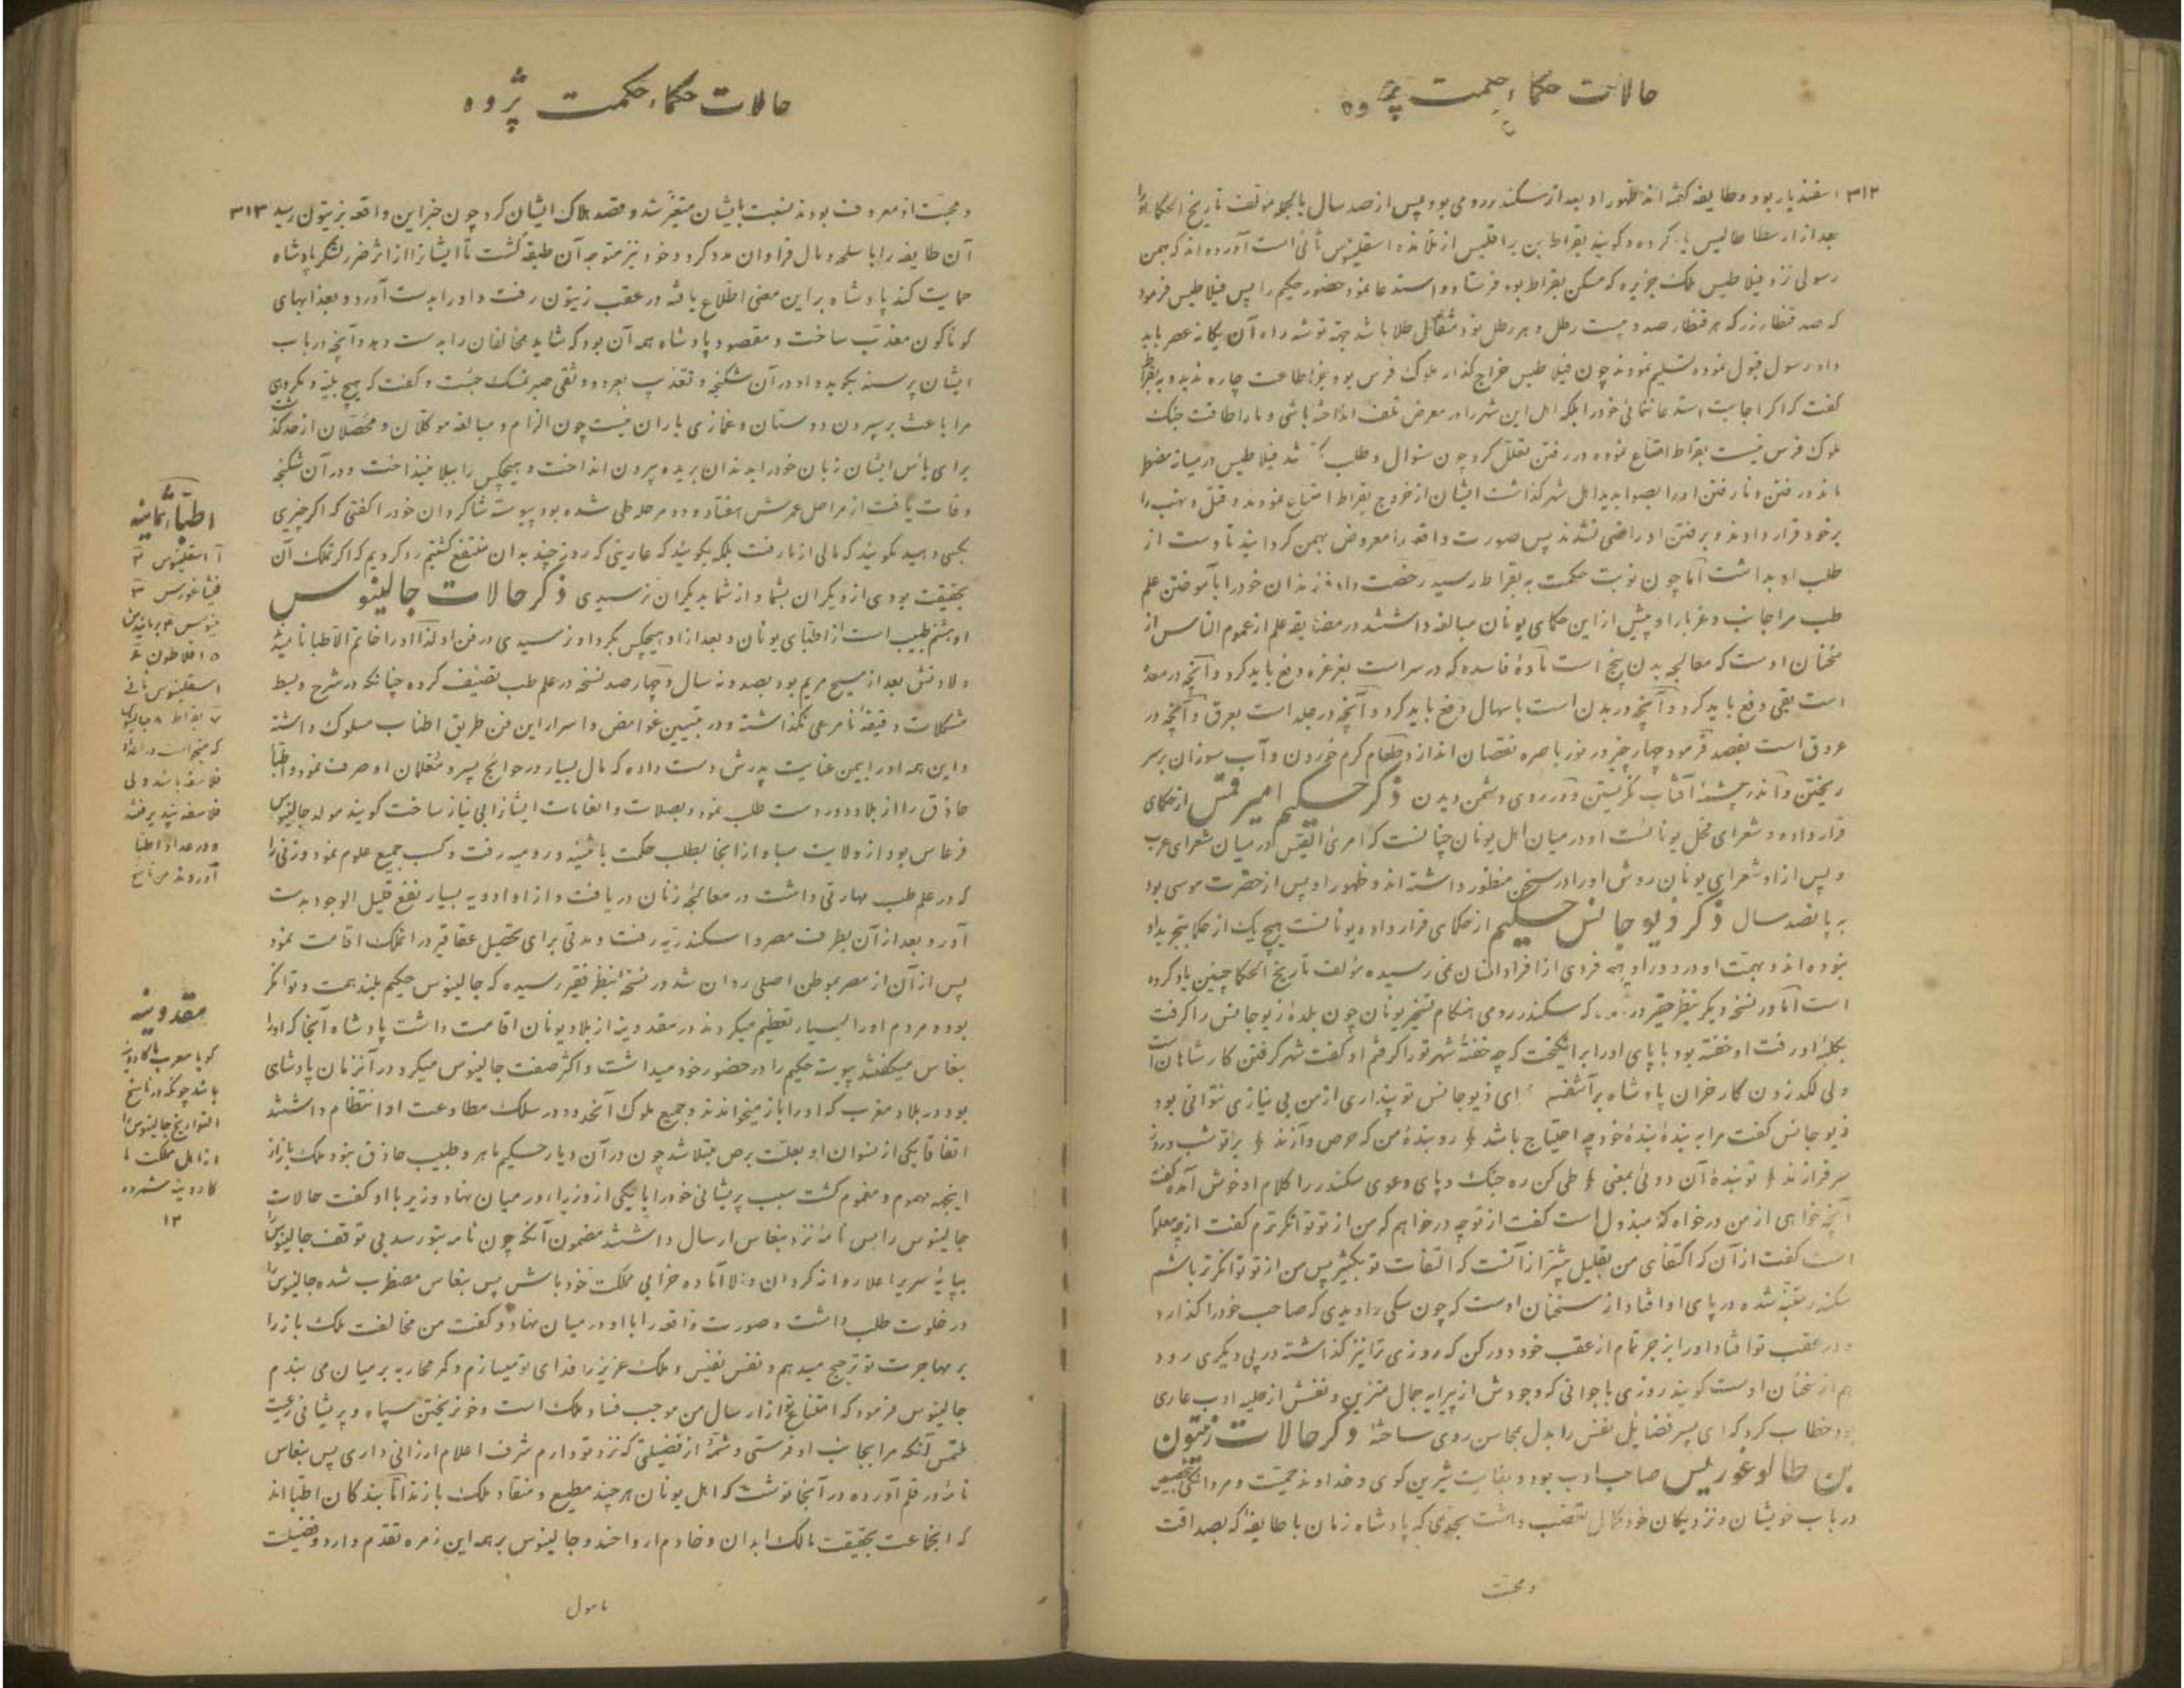 حالات حکماء حکمت پژوه
۳۱۲ اسفندیار بود و طایفه گفته اند ظهور او بعد از سکندر رومی بود پس از صد سال بالجمله مؤلف تاریخ الحکما او را
بعد از ارسطاطالیس یاد کرده و گویند بقراط بن براقلیس از تلامذه اسقلینوس ثانی است آورده اند که بهمن
رسولی نزد فیلاطیس ملک جزیره که مسکن بقراط بود فرستاد و استدعا نمود حضور حکیم را پس فیلاطیس فرمود
که صد قنطار زر که هر قنطار صد و بیست رطل و هر رطل نود مثقال طلا باشد جهة توشه راه آن یگانه عصر باید
داد رسول قبول نموده تسلیم نمودند چون فیلاطیس خراج گذار ملوک فرس بود بجز اطاعت چاره ندید و به بقراط
گفت که اگر اجابت استدعا ننمائی خود را بلکه اهل این شهر را در معرض تلف انداخته باشی و ما را طاقت جنگ
ملوک فرس نیست بقراط امتناع نموده در رفتن تعلل کرد چون سئوال و طلب شد فیلاطیس در میانه مضطر
ماند در رفتن و نارفتن او را بصوابدید اهل شهر گذاشت ایشان از خروج بقراط امتناع نمودند و قتل و نهب را
بر خود قرار دادند و برفتن او راضی نشدند پس صورت واقعه را معروض بهمن گردانید تا دست از
طلب او بداشت اما چون نوبت حکمت به بقراط رسید رخصت داد فرزندان خود را بآموختن علم
طب مر اجانب و غربا را و پیش از این حکمای یونان مبالغه داشتند در مضایقه علم از عموم الناس از
سخنان اوست که معالجه بدن پنج است مادهٔ فاسده که در سر است بغرغره دفع باید کرد و آنچه در معده
است بقی دفع باید کرد و آنچه در بدن است باسهال دفع باید کرد و آنچه در جلد است بعرق و آنچه در
عروق است بفصد فرمود چهار چیز در نور باصره نقصان اندازد طعام گرم خوردن و آب سوزان بر سر
ریختن و اندر چشمهٔ آفتاب نگریستن و در روی دشمن دیدن ذکر حکیم امیرقس از حکمای
قرار داده و شعرای فحل یونانست او در میان اهل یونان چنانست که امرئ القیس در میان شعرای عرب
و پس از او شعرای یونان روش او را در سخن منظور داشته اند و ظهور او پس از حضرت موسی بود
به پانصد سال ذکر ذیوجانس حکیم از حکمای قرار داده یونانست هیچ یک از حکما بتجرید او
نبوده اند و بهمت او در دور او به فردی از افراد انسان نمی رسیده مؤلف تاریخ الحکما چنین یاد کرده
است اما در نسخه دیگر بنظر حقیر که سکندر رومی هنگام تسخیر یونان چون بلدهٔ ذیوجانس را گرفت
بکلبهٔ او رفت او خفته بود با پای او را برانگیخت که چه خفتهٔ شهر تو را گرفتم او گفت شهر گرفتن کار شاهان است
ولی لگد زدن کار خران پادشاه برآشفته ای ذیوجانس تو پنداری از من بی نیازی نتوانی بود
ذیوجانس گفت مرا به بندهٔ بندهٔ خود چه احتیاج باشد ﴿ دو بندهٔ من که حرص و آزند ﴿ بر تو شب و روز
سرفرازند ﴿ تو بندهٔ آن دوئی بمعنی ﴿ طی کن ره جنگ و پای دعوی سکندر را کلام او خوش آمده گفت
آنچه خواهی از من درخواه که مبذول است گفت از تو چه درخواهم که من از تو توانگرترم گفت از چه معلوم
است گفت از آن که اکتفای من بقلیل بیشتر از آنست که التفات تو بکثیر پس من از تو توانگرتر باشم
سکندر متنبه شده در پای او افتاد از سخنان اوست که چون سگی را دیدی که صاحب خود را گذارد
و در عقب تو افتاد او را بزجر تمام از عقب خود دور کن که روزی ترا نیز گذاشته در پی دیگری رود
هم از سخنان اوست گویند روزی با جوانی که وجودش از پیرایه جمال متزین و نفسش از حلیه ادب عاری
بود خطاب کرد که ای پسر فضایل نفس را بدل محاسن روی ساختهٔ ذکر حالات زیتون
بن طالوغوریس صاحب ادب بود و بغایت شیرین گوی و خداوند حمیت و مردانگی
در باب خویشان و نزدیکان خود کمال تعصب داشت بحدی که پادشاه زمان با طایفهٔ که بصداقت
و محبت
حالات حکماء حکمت پژوه
و محبت او معروف بودند نسبت بایشان متغیر شد و قصد هلاک ایشان کرد چون خبر این واقعه بزیتون رسید ۳۱۳
آن طایفه را با سلحه و مال فراوان مدد کرد و خود نیز متوجه آن طبقه گشت تا ایشانرا از اثر ضرر لشکر پادشاه
حمایت کند پادشاه بر این معنی اطلاع یافته در عقب زیتون رفت و او را بدست آورد و بعذابهای
گوناگون معذب ساخت و مقصود پادشاه همه آن بود که شاید مخالفان را بدست دهد و آنچه در باب
ایشان پرسند بگوید و او در آن شکنجه و تعذیب بعروه وثقی صبر تمسک جست و گفت که هیچ بلیه و مکروهی
مرا باعث بر سپردن دوستان و غمازی یاران نیست چون الزام و مبالغه موکلان و محصلان از حد گذشت
برای یأس ایشان زبان خود را بدندان بریده بیرون انداخت و هیچکس را ببلا نینداخت و در آن شکنجه
وفات یافت از مراحل عمرش هفتاد و دو مرحله طی شده بود پیوسته شاگردان خود را گفتی که اگر چیزی
بکسی دهید مگوئید که مالی از ما رفت بلکه بگوئید که عاریتی که روزی چند به آن منتفع گشتیم رد کردیم که اگر تملک آن
بحقیقت بودی از دیگران بشما و از شما بدیگران نرسیدی ذکر حالات جالینوس
او هشتم طبیب است از اطبای یونان و بعد از او هیچکس بگرد او نرسیدی در فن او لهذا او را خاتم الاطبا نامیده
ولادتش بعد از مسیح مریم بود بصد و نه سال و چهار صد نسخه در علم طب تصنیف کرده چنانکه در شرح و بسط
مشکلات دقیقهٔ نامرعی نگذاشته و در تبیین غوامض و اسرار این فن طریق اطناب مسلوک داشته
و این همه او را بیمن عنایت پدرش دست داده که مال بسیار در حوائج پسر و معلمان او صرف نمود و اطبا
حاذق را از بلاد دور دست طلب نمود و بصلات و انعامات ایشانرا بی نیاز ساخت گویند مولد جالینوس
فرغاس بود از ولایت سیا و از انجا بطلب حکمت باثینه و رومیه رفت و کسب جمیع علوم نمود و زنی را
که در علم طب مهارتی داشت در معالجهٔ زنان دریافت و از او ادویه بسیار نفع قلیل الوجود بدست
آورد و بعد از آن بطرف مصر و اسکندریه رفت و مدتی برای تحصیل عقاقیر در انملک اقامت نمود
پس از آن از مصر بموطن اصلی روان شد در نسخهٔ بنظر فقیر رسیده که جالینوس حکیم بلند همت و توانگر
بود و مردم او را بسیار تعظیم میکردند در مقدونیه از بلاد یونان اقامت داشت پادشاه آنجا که او را
بنغاس میگفتند پیوسته حکیم را در حضور خود میداشت و اکثر صفت جالینوس میکرد در آنزمان پادشاهی
بود در بلاد مغرب که او را باز میخواندند و جمیع ملوک آنحدود در سلک مطاوعت او انتظام داشتند
اتفاقا یکی از نسوان او بعلت برص مبتلا شد چون در آن دیار حکیم ماهر و طبیب حاذق نبود ملک باز از
اینجهة مهموم و مغموم گشت سبب پریشانی خود را با یکی از وزراء در میان نهاد وزیر با او گفت حالات
جالینوس را پس نامهٔ نزد بنغاس ارسال داشتند مضمون آنکه چون نامه بتو رسد بی توقف جالینوس را
بپایهٔ سریر اعلا روانه گردان والا آماده خرابی مملکت خود باش پس بنغاس مضطرب شده جالینوس را
در خلوت طلب داشت و صورت واقعه را با او در میان نهاد و گفت من مخالفت ملک باز را
بر مهاجرت تو ترجیح میدهم و نفس نفیس و ملک عزیز را فدای تو میسازم و کمر محاربه بر میان می بندم
جالینوس فرمود که امتناع تو از ارسال من موجب فساد ملک است و خونریختن سپاه و پریشانی رعیت
ملتمس آنکه مرا بجانب او فرستی و شمهٔ از فضیلتی که نزد تو دارم شرف اعلام ارزانی داری پس بنغاس
نامهٔ در قلم آورده در آنجا نوشت که اهل یونان هر چند مطیع و منقاد ملک بازند اما بندگان اطبا اند
که انجماعت بحقیقت مالک ابدان و خادم ارواحند و جالینوس بر همه این زمره تقدم دارد و فضیلت
مامول
اطباء ثمانیه
آ اسقلینوس ۲
فیثاغورس ۳
مینوس ۴ برمانیدس
۵ افلاطون ۶
اسقلینوس ثانی
۷ بقراط ۸ جالینوس
فلاسفه باشد ولی
فلاسفه نپذیرفته
و در عداد اطبا
آوردند من ناسخ
مقدونیه
گویا معرب ماکادونیه
باشد چونکه در ناسخ
التواریخ جالینوس را
از اهل مملکت ما
کادونیه شمرده
۱۲